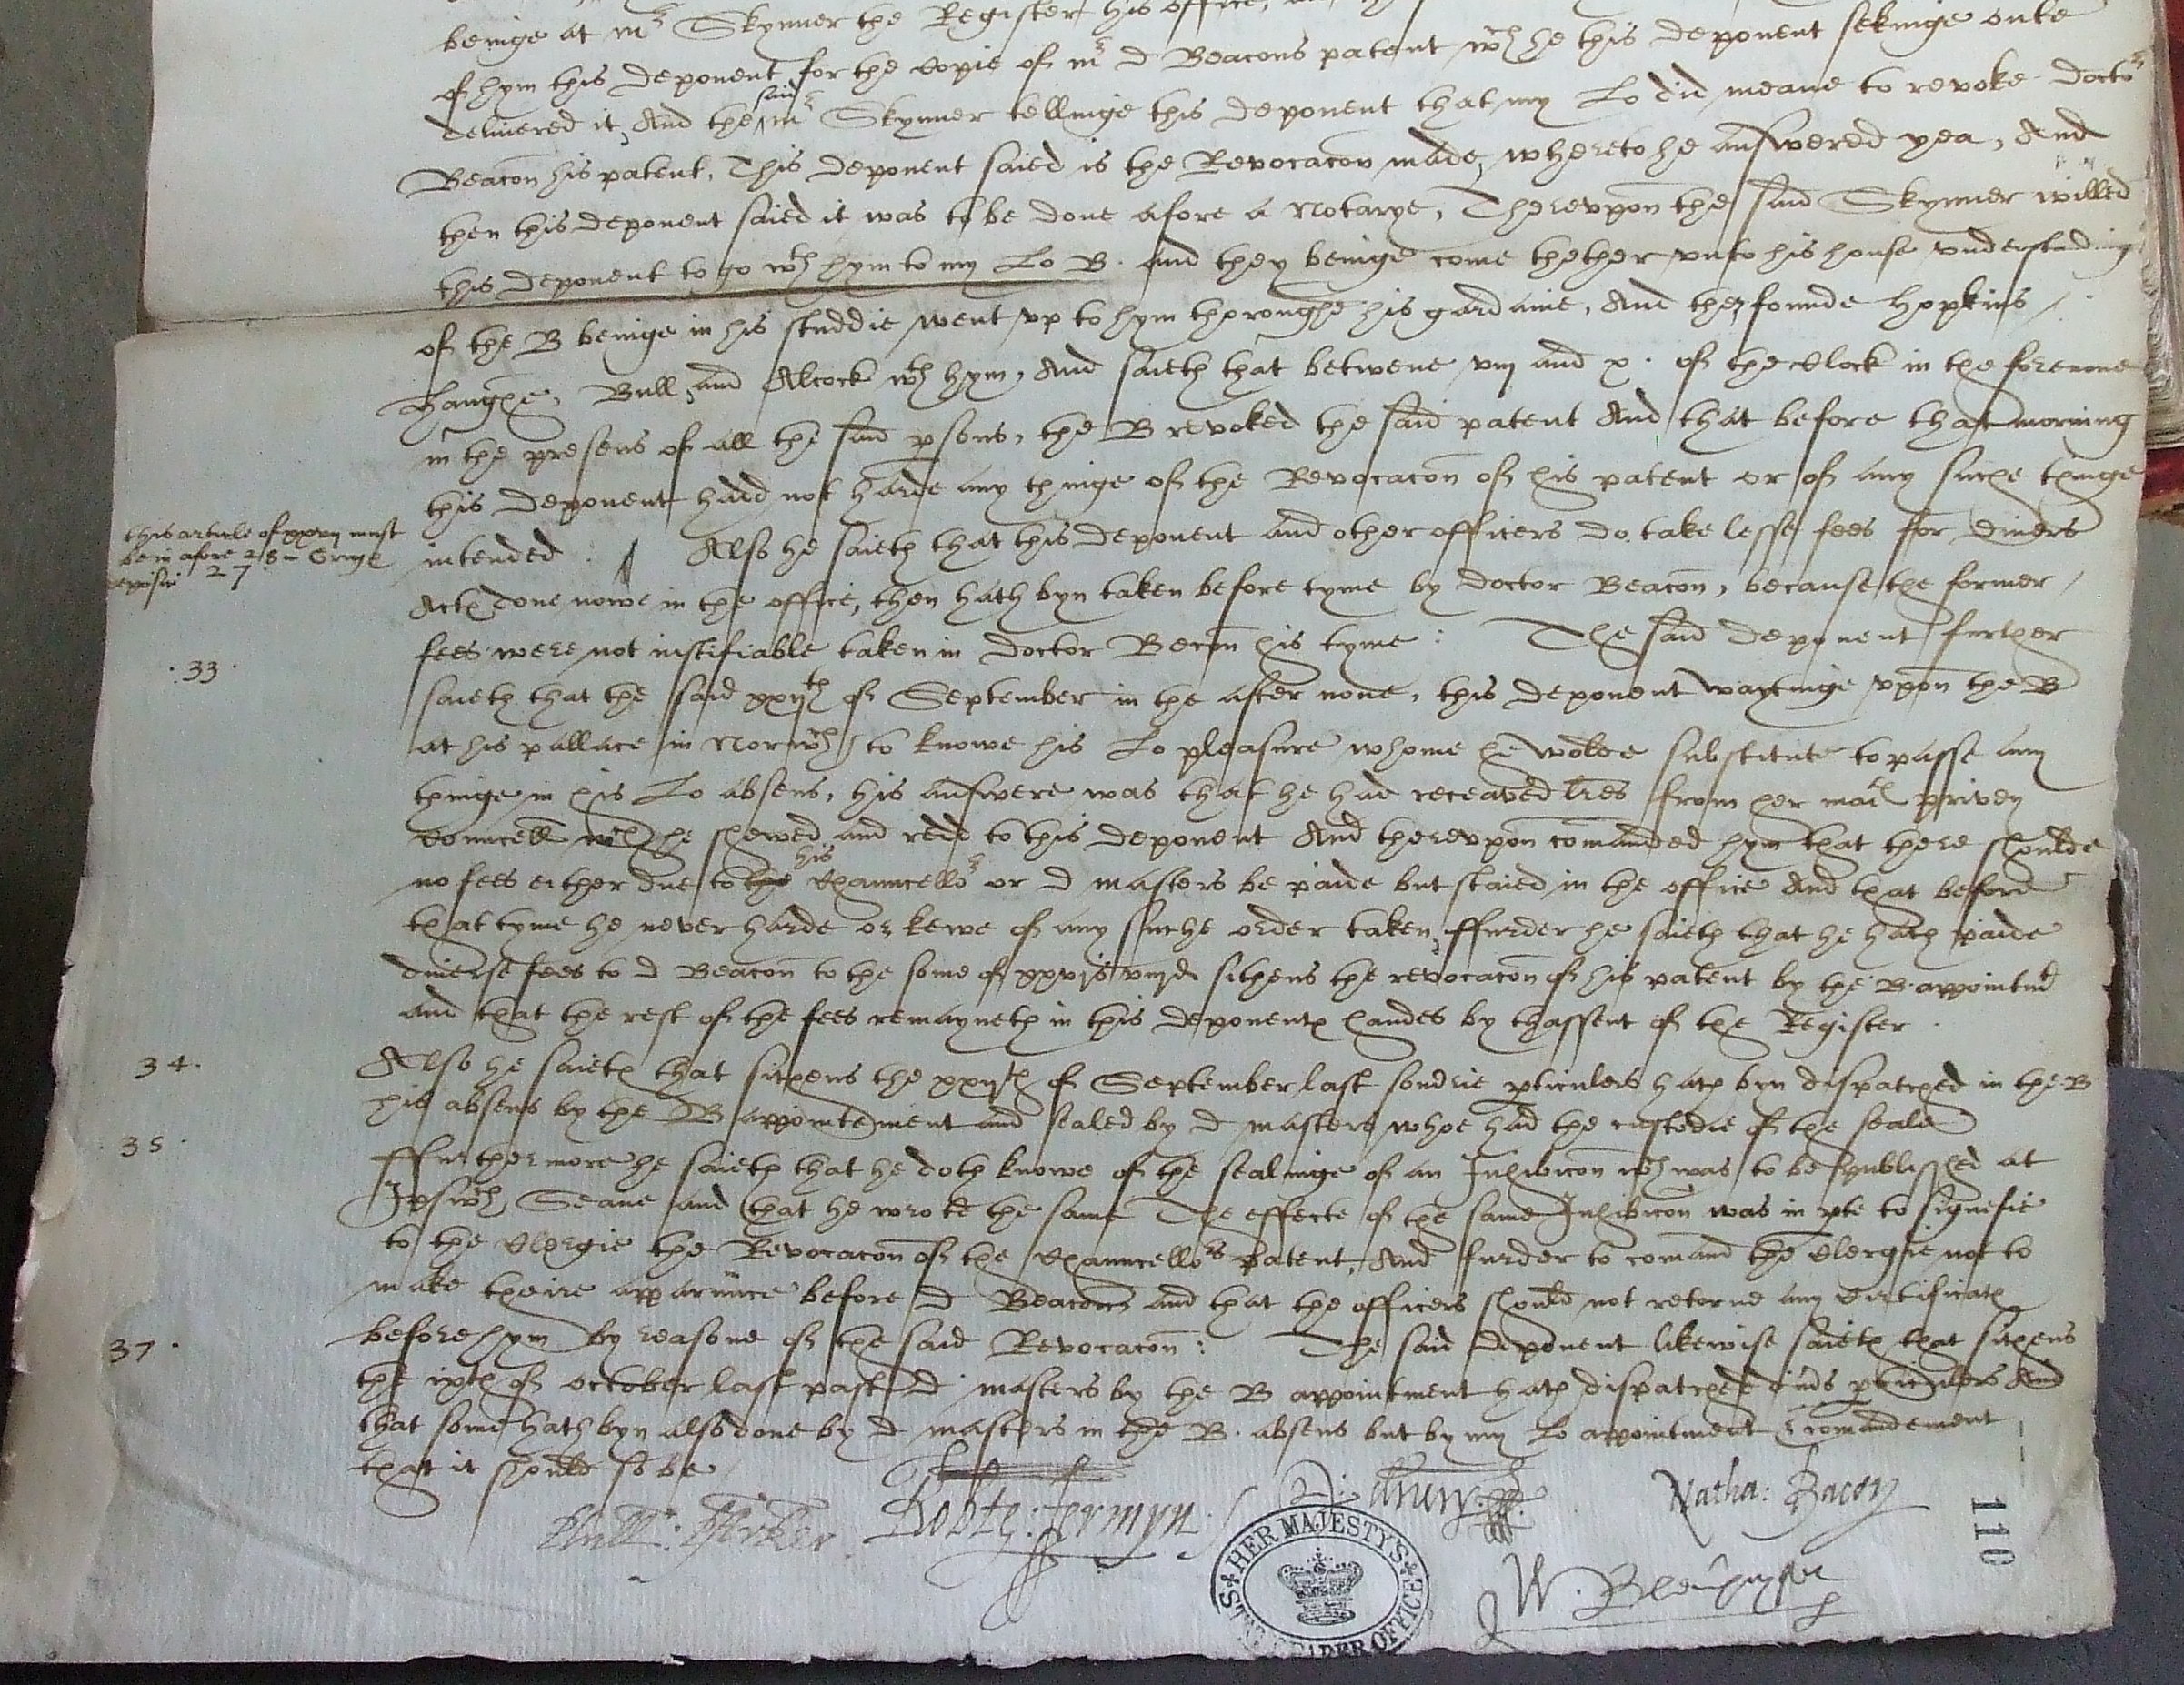 beinge at mr Skynner the Register his office,
of hym this deponent for the copie of mr d Beacons patent wch he this deponent sekinge oute
delivered it, And the said mr Skynner tellinge this deponent that my Lo did meane to revoke doctor
Beacon his patent, This deponent saied is the Revocacon made, whereto he answered yea, And
then this deponent saied it was to be done afore a Notarye, Therevpon the said Skynner willed
this deponent to go wth hym to my Lo B. And they beinge come thether vnto his house vnderstanding
of the B beinge in his studdie went vp to hym throughe his gardaine, And ther founde Hopkins
Bull, and Alcock wth hym, And saieth that betwene viij and x. of the clock in the forenone
in the presens of all the said psons, the B revoked the said patent And that before that morning
this deponent hadd not harde any thinge of the Revocacon of his patent or of any suche thinge
this article of xxvij must
be in afore 28
27
intended : Also he saieth that this deponent and other officers do take lesse fees for divers
Actes done nowe in the office, then hath byn taken before tyme by doctor Beacon, because the former
fees were not iustifiable taken in doctor Becon his tyme : The said deponent further
.33.
saieth that the said xxijth of September in the after none, this deponent waytinge vpon the B
at his pallace in Norwch to knowe his Lo pleasure whome he wolde substitute to passe any
thinge in his Lo absens, his answere was that he had receaved lres from her maties privey
Councell wch he shewed and redd to this deponent And therevpon comanded hym that there shoulde
no fees either due to the his Chauncellor or d masters be paide but staied in the office And that before
that tyme he never harde or kewe of any suche order taken, ffurder he saieth that he hath paide
diverse fees to d Beacon to the some of xxvjs viijd sithens the revocacon of his patent by the B. appointmt
and that the rest of the fees remayneth in this deponentes handes by thassent of the Register .
34.
Also he saieth that sithens the xxijth of September last sondrie pticulers hath byn dispatched in the B
his absens by the B appointement and sealed by d masters whoe had the custodie of the seale
35.
ffurthermore he saieth that he doth knowe of the sealinge of an Inhibicon wch was to be published at
Ipswch Seane and that he wrote the same The effecte of the same Inhibicon was in pte to signefie
to the Clergie the Revocacon of the Chauncellors patent, And furder to comand the Clergie not to
make theire apparunce before d Beacon and that the officers should not retorne any Certificates
before hym by reasone of the said Revocacon : The said deponent likewise saieth that sithens
37.
the ixth of October last past d masters by the B appointment hath dispatched divds pticulers And
that some hath byn also done by d masters in the B. absens but by my Lo appointment & comandement
that it should so be
Robte : Jermyn.
Natha: Bacon
W. Blenhaysett
HER MAJESTY'S STATE PAPER OFFICE
110